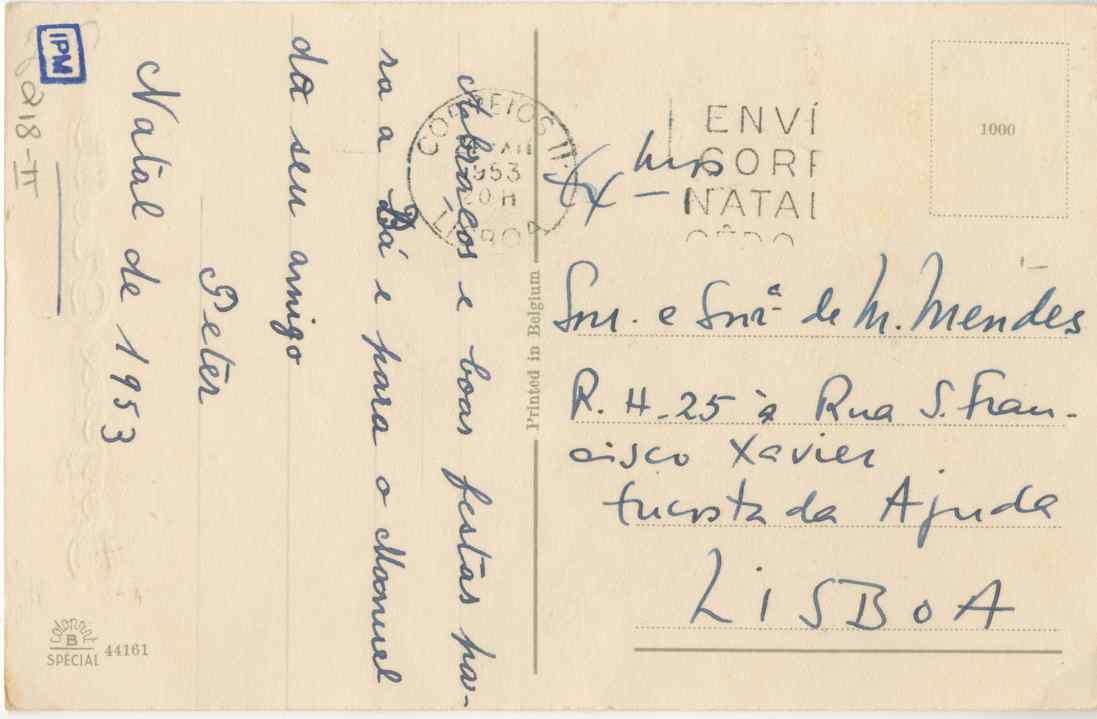 Abraços e boas festas pa-
ra a Bá e para o Manuel
do seu amigo
Peter
Natal de 1953
IPM
218-II
CORREIOS
XII
1953
20 H
LISBOA
ENVI
CORR
NATAL
1000
Exmos
Snr. e Snrª de M. Mendes
R. H-25 à Rua S. Fran-
cisco Xavier
Encosta da Ajuda
LISBOA
Printed in Belgium
Colprint
B
SPÉCIAL 44161